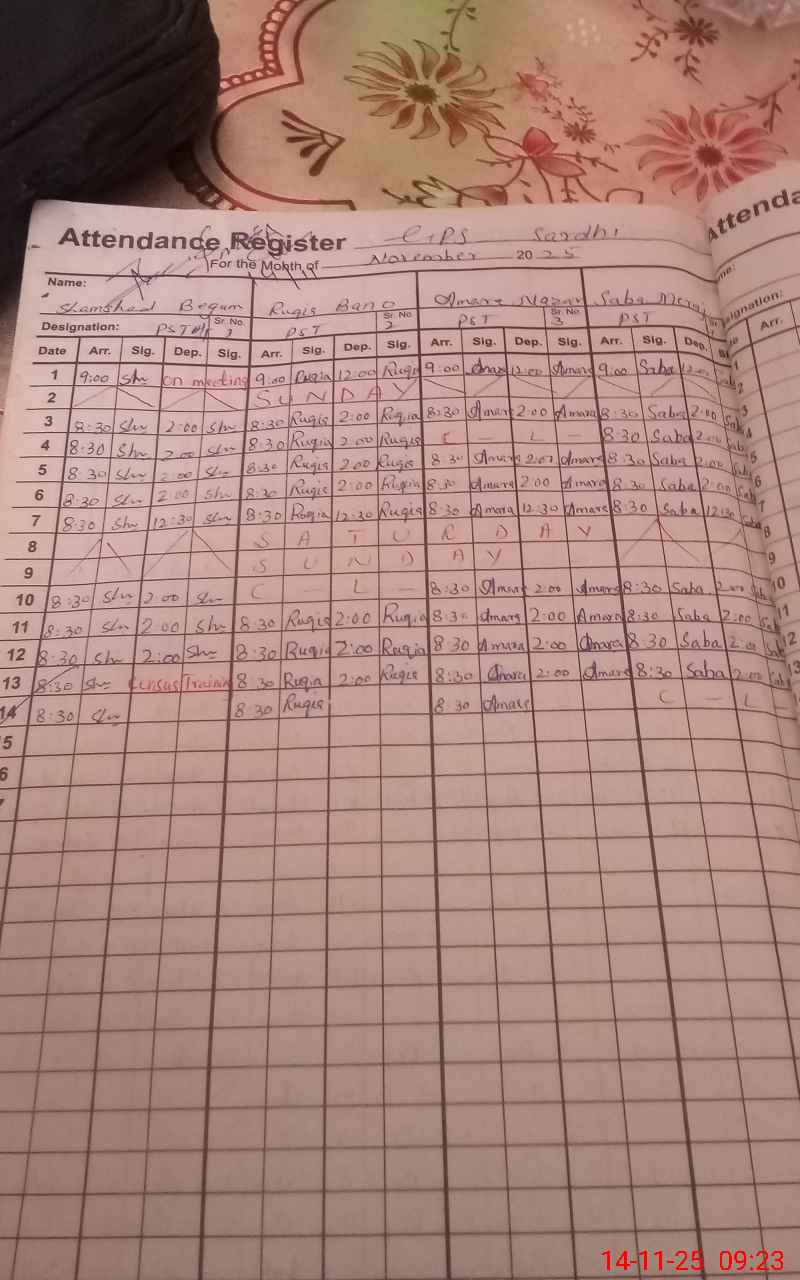 Attendance Register GPS Sardhi
For the Month of November 2025
Name: Shamshad Begum Ruqia Bano Amara Nazar Saba Meraj
Designation: PST Sr. No. 1 PST Sr. No. 2 PST Sr. No. 3 PST
Date Arr. Sig. Dep. Sig. Arr. Sig. Dep. Sig. Arr. Sig. Dep. Sig. Arr. Sig. Dep.
1 9:00 Sh On meeting 9:00 Ruqia 12:00 Ruqia 9:00 Amara 12:00 Amara 9:00 Saba 12:00
2 SUNDAY
3 8:30 Sh 2:00 Sh 8:30 Ruqia 2:00 Ruqia 8:30 Amara 2:00 Amara 8:30 Saba 2:00 Saba
4 8:30 Sh 2:00 Sh 8:30 Ruqia 2:00 Ruqia C — L — 8:30 Saba 2:00 Saba
5 8:30 Sh 2:00 Sh 8:30 Ruqia 2:00 Ruqia 8:30 Amara 2:00 Amara 8:30 Saba 2:00 Saba
6 8:30 Sh 2:00 Sh 8:30 Ruqia 2:00 Ruqia 8:30 Amara 2:00 Amara 8:30 Saba 2:00 Saba
7 8:30 Sh 12:30 Sh 8:30 Ruqia 12:30 Ruqia 8:30 Amara 12:30 Amara 8:30 Saba 12:30 Saba
8 SATURDAY
9 SUNDAY
10 8:30 Sh 2:00 Sh C — L — 8:30 Amara 2:00 Amara 8:30 Saba 2:00 Saba
11 8:30 Sh 2:00 Sh 8:30 Ruqia 2:00 Ruqia 8:30 Amara 2:00 Amara 8:30 Saba 2:00 Saba
12 8:30 Sh 2:00 Sh 8:30 Ruqia 2:00 Ruqia 8:30 Amara 2:00 Amara 8:30 Saba 2:00 Saba
13 8:30 Sh Census Training 8:30 Ruqia 2:00 Ruqia 8:30 Amara 2:00 Amara 8:30 Saba 2:00 Saba
14 8:30 Sh 8:30 Ruqia 8:30 Amara C — L
5
6
Attenda
Arr.
14-11-25 09:23